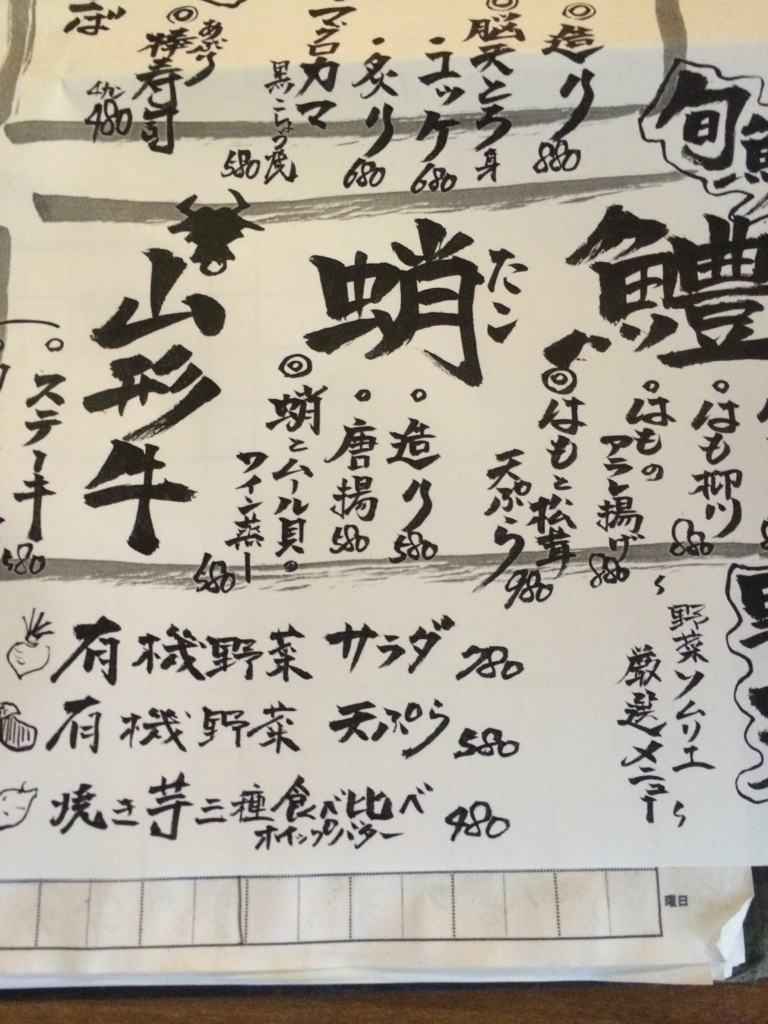 旬
◎造り
880
◎脳天とろ身
・ユッケ
680
・炙り
680
マグロカマ
黒こしょう焼
580
◎あぶり
棒寿司
4カン
480
ぼ
鱧
・はも柳川
880
・はもの
アラレ揚げ
880
◎はもと松茸
天ぷら
980
蛸
たこ
・造り
580
・唐揚
580
◎蛸とムール貝の
ワイン蒸し
580
山形牛
ステーキ
580
〜野菜ソムリエ
厳選メニュー〜
有機野菜 サラダ 780
有機野菜 天ぷら 580
焼き芋三種食べ比べ 480
ホイップバター
曜日